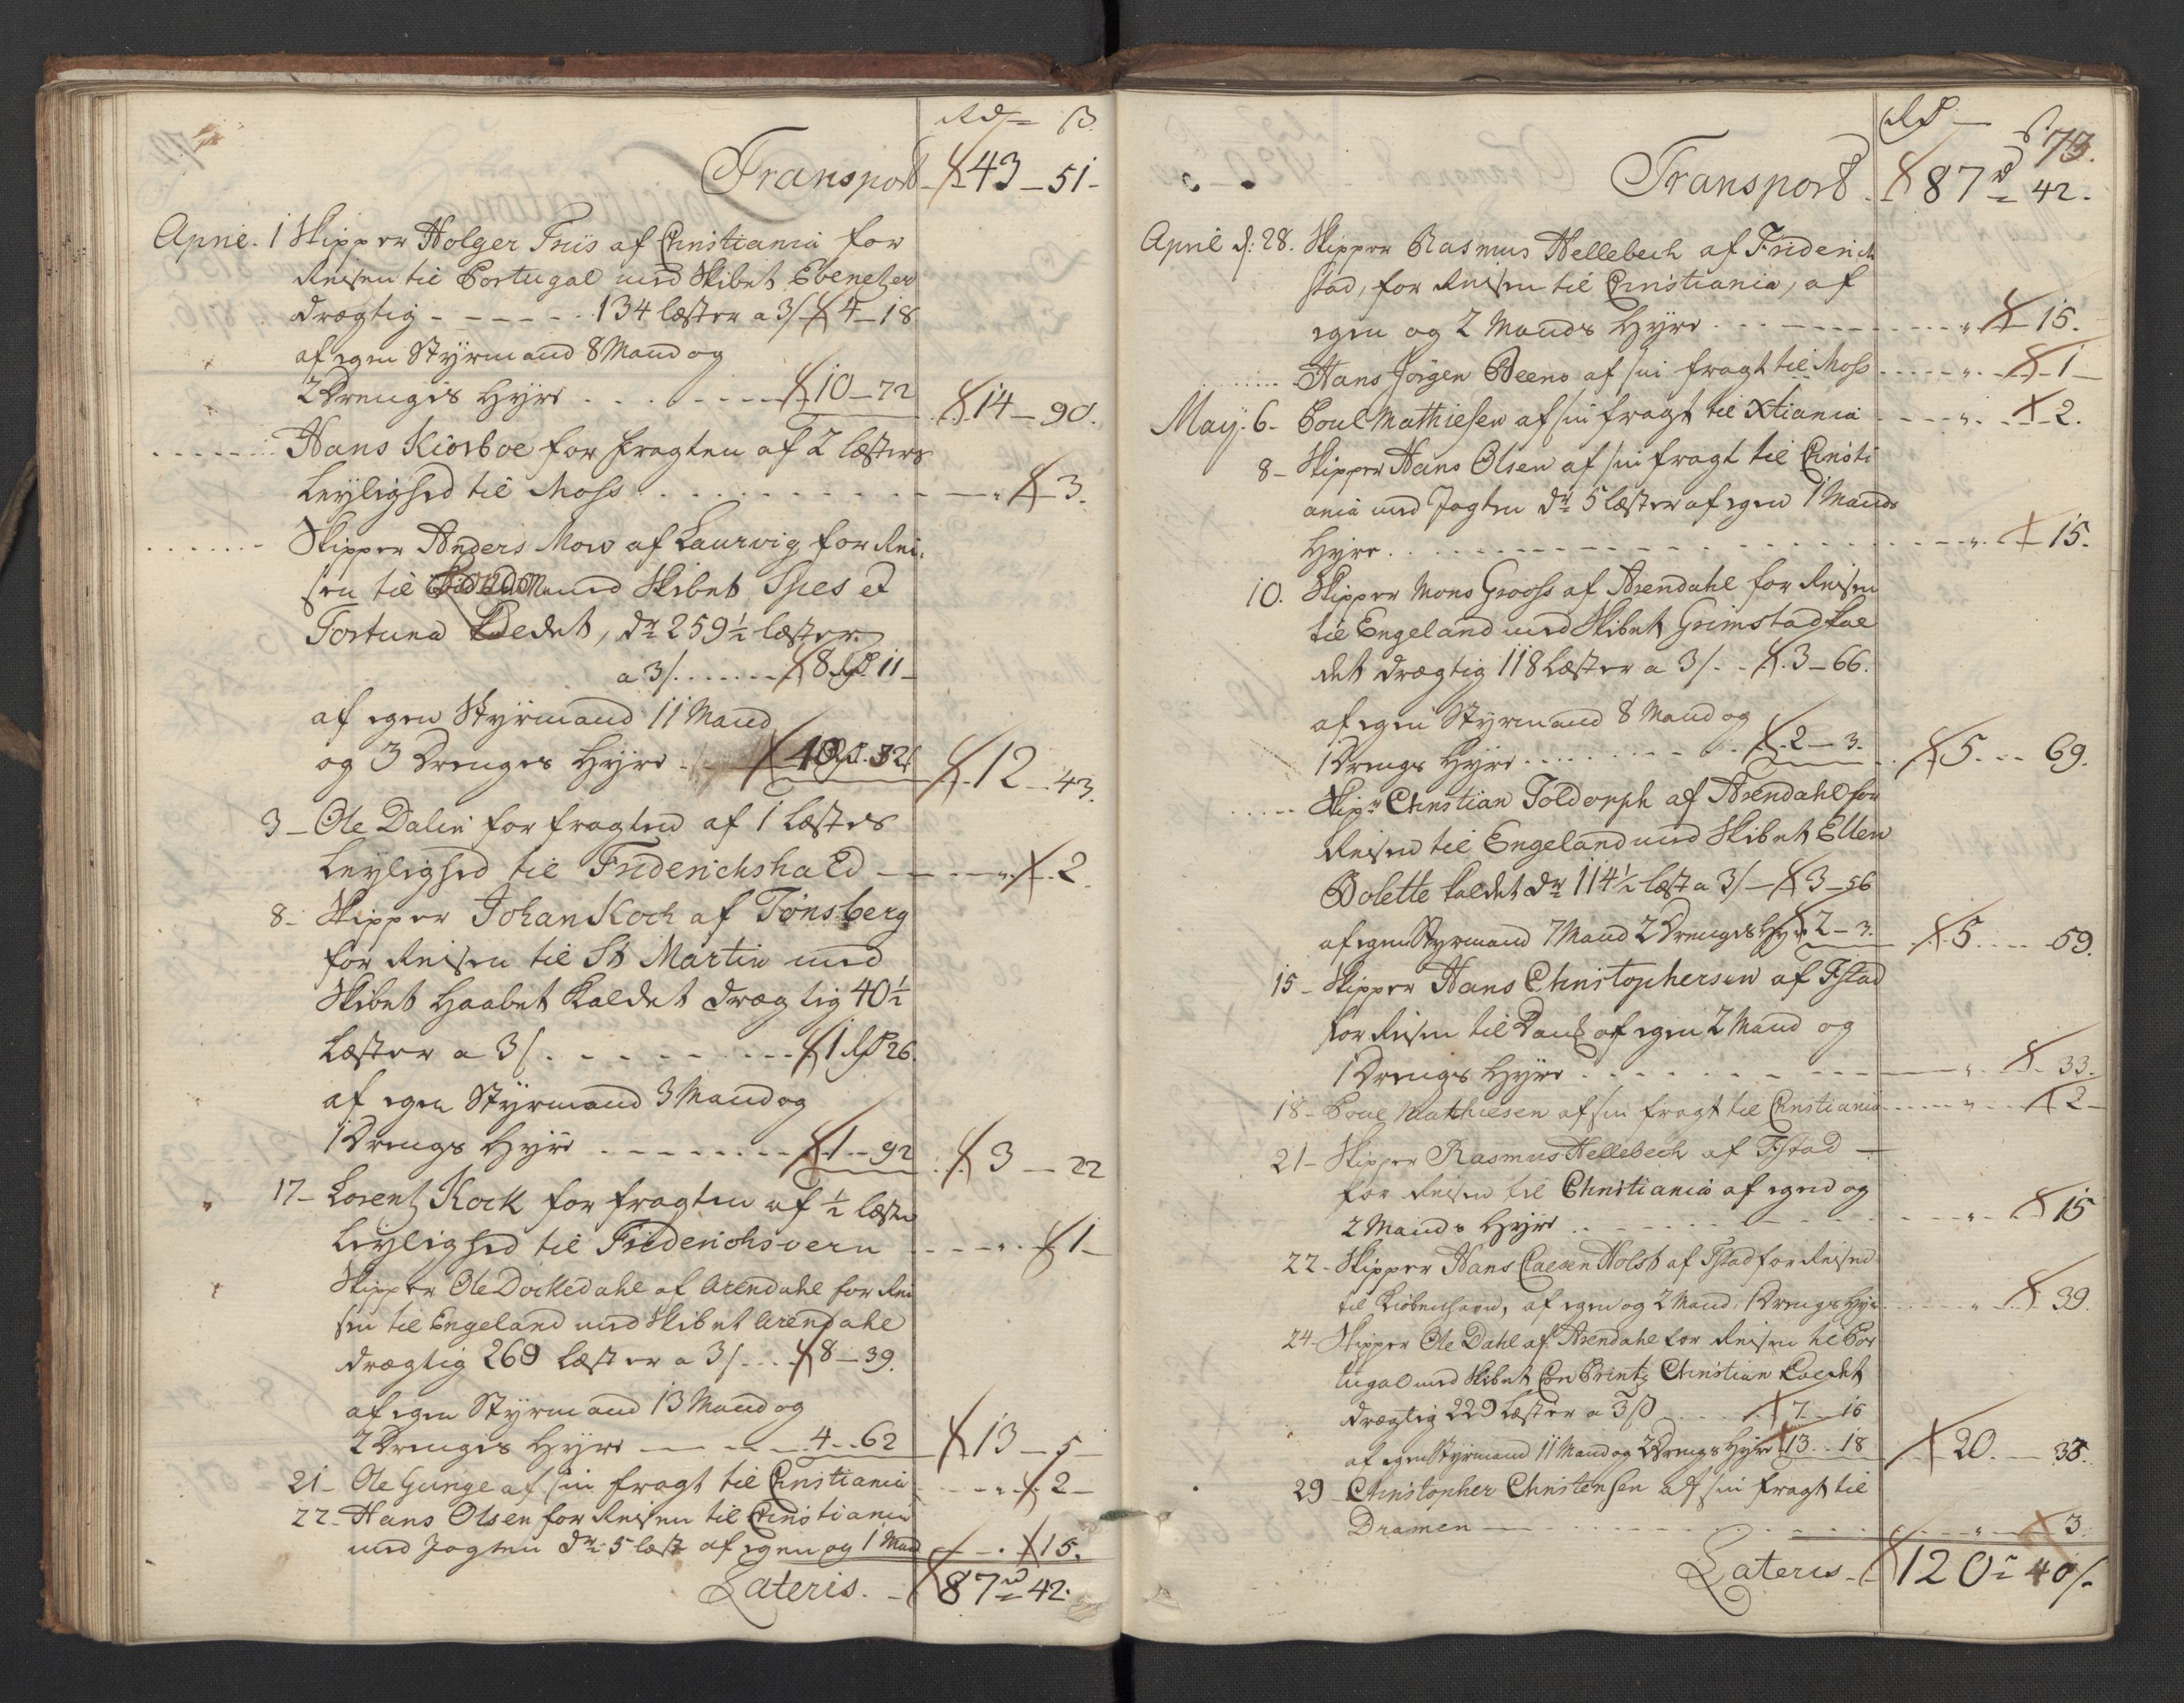 Rd β
Transport 43 - 51 -
April. 1 Skipper Holger Friis af Christiania for
Reisen til Portugal med Skibet Ebenetzer
drægtig - - - - - 134 læster a 3/ 4 - 18
af egen Styrmand 8 Mand og
2 Drenges Hyre . . . . 10 - 72 14 - 90.
Hans Kiørboe for fragten af 2 læsters
Leylighed til Moss . . . . . . . " 3.
Skipper Anders Mow af Laurvig for Rei¬
sen til med Skibet Spes et
Fortuna Kaldet, dr 259½ læster
a 3/ . . . . . 8 Rd 11 -
af egen Styrmand 11 Mand
og 3 Drenges Hyre 12 - 43.
3 - Ole Dalin for fragten af 1 Læstes
Leylighed til Friderichshald - " 2.
8 - Skipper Johan Koch af Tønsberg
for Reisen til St Martin med
Skibet Haabet Kaldet drægtig 40½
Læster a 3/ . . . . . 1 Rd 26.
af egen Styrmand 3 Mand og
1 Drengs Hyre . . . . . 1 - 92 3 - 22
17 - Lorentz Kock for fragten af ½ læste
Leylighed til Friderichsvern . . . " 1 -
Skipper Ole Dockedahl af Arendahl for Rei
sen til Engeland med Skibet Arendahl
drægtig 269 Læster a 3/ . . . 8 - 39.
af egen Styrmand 13 Mand og
2 Drenges Hyre - - - 4 - 62 13 - 5 -
21 - Ole Gunge af sin fragt til Christiania . . " 2 -
22 - Hans Olsen for Reisen til Christiania
med Jagten dr 5 læst af egen og 1 Mand - . 15.
Lateris. - 87 rd 42.
Rd β
73.
Transport. 87 rd 42.
April d: 28. Skipper Rasmus Hellebech af Friderich
stad, for Reisen til Christiania, af
egen og 2 Mands Hyre . . . . " 15.
Hans Jörgen Beens af sin fragt til Moss . . . . " 1 -
May. 6 - Poul Mathiesen af sin fragt til Xtiania - - - " 2.
8 - Skipper Hans Olsen af sin fragt til Christi
ania med Jagten dr 5 læster af egen 1 Mands
Hyre . . . . . . . . " 15.
10. Skipper Mons Grooss af Arendahl for Reisen
til Engeland med Skibet Grimstad kal
det drægtig 118 Læster a 3/. . 3 - 66.
af egen Styrmand 8 Mand og
1 Drengs Hyre . . . . . . 2 - 3. 5 - - 69.
Skipr Christian Toldorph af Arendahl for
Reisen til Engeland med Skibet Ellen
Bolette kaldet dr 114½ læst a 3/ - 3 - 56
af egen Styrmand 7 Mand 2 Drenges Hyre 2 - 3. 5 - - 59.
15 - Skipper Hans Christophersen af Fstad
for Reisen til Dantz af egen 2 Mand og
1 Drengs Hyre . . . . . . " 33.
18 - Poul Mathiesen af sin fragt til Christiania . . . " 2 -
21 - Skipper Rasmus Hellebech af Fstad -
for Reisen til Christiania af egen og
2 Mands Hyre . . . . . . " 15
22 - Skipper Hans Claesen Holst af Fstad for Reisen
til Kiøbenhavn, af egen og 2 Mand 1 Drengs Hyre . . . " 39.
24 - Skipper Ole Dahl af Arendahl for Reisen til Por
tugal med Skibet Printz Christian Kaldet
drægtig 229 Læster a 3 β . . . 7 - 15
af egen Styrmand 11 Mand og 2 Drengs Hyre 13 . . 18 20. - 33.
29 - Christopher Christensen af sin fragt til
Dramen - . . . . . " 3.
Lateris - 120 - 40/-